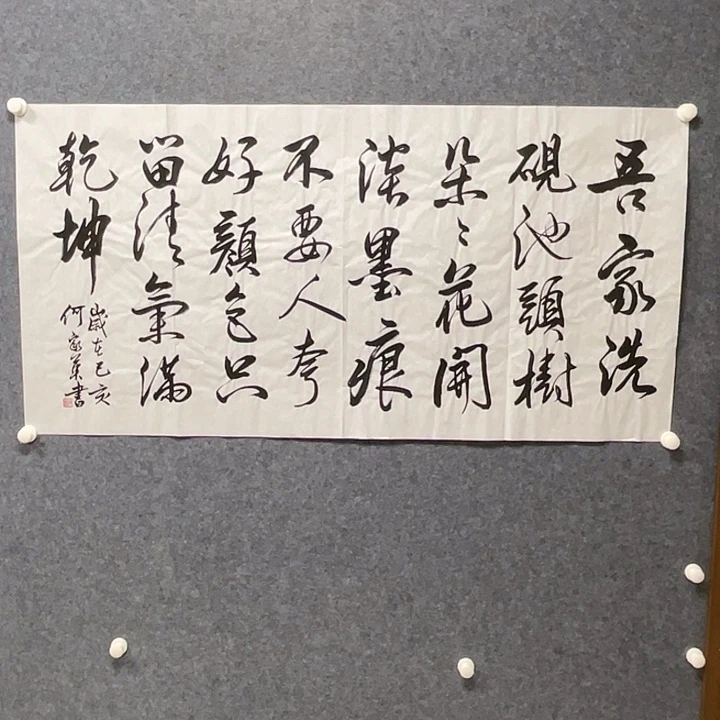 吾家洗
硯池頭樹
朵々花開
淡墨痕
不要人夸
好顏色只
留清氣滿
乾坤
歲在己亥
何家書